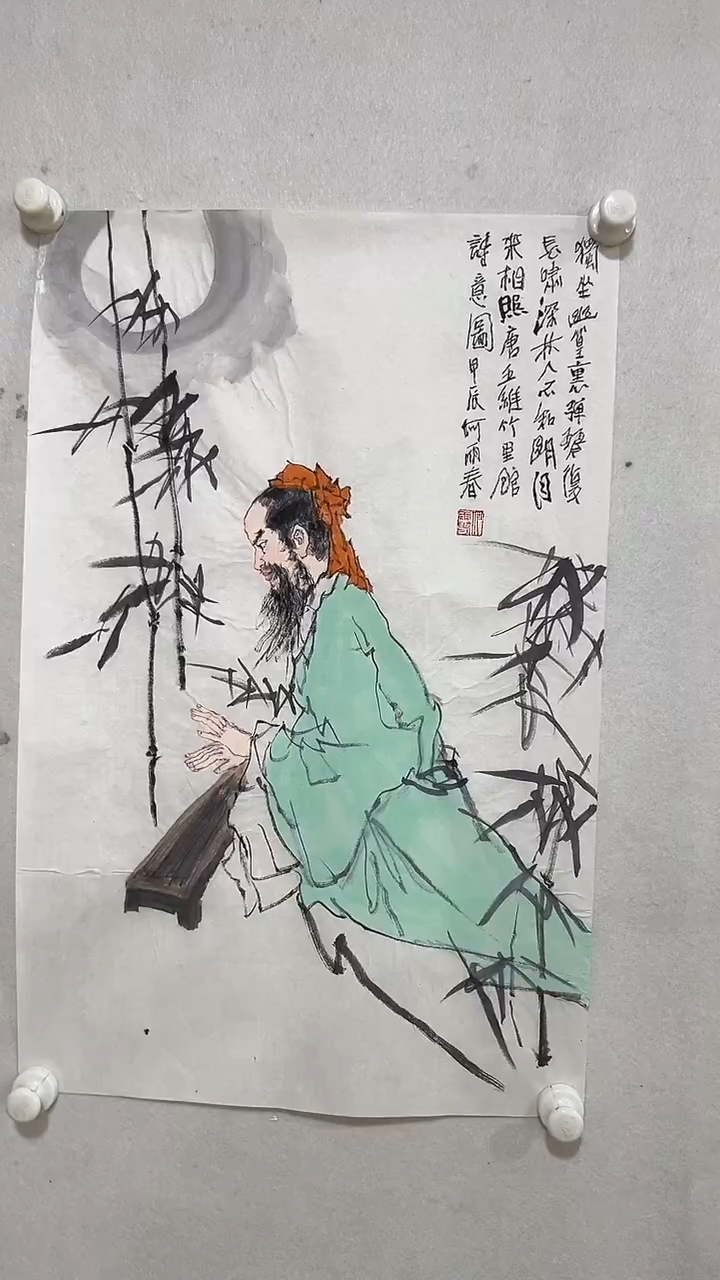 獨坐幽篁裏彈琴復
長嘯深林人不知明月
來相照唐王維竹里館
詩意圖甲辰何雨春